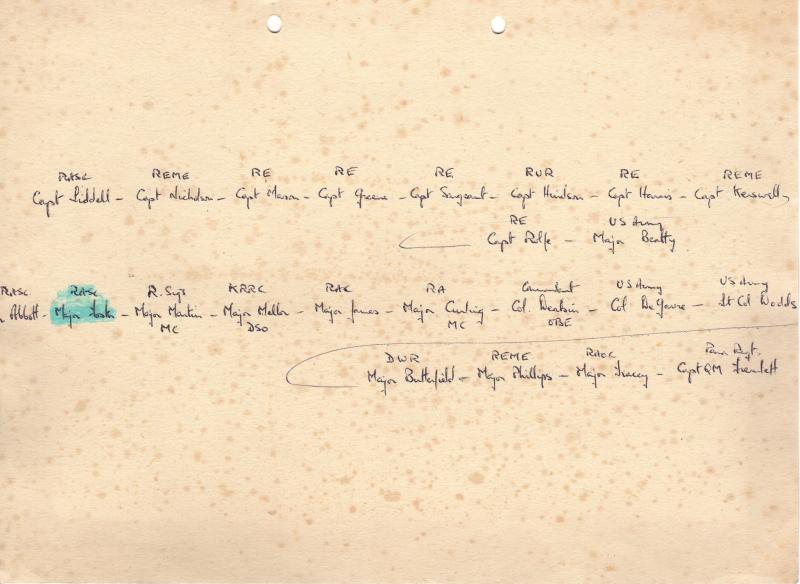 RASC REME RE RE RE RUR RE REME
Capt Liddell - Capt Nicholson - Capt Mason - Capt Greene - Capt Sargeant - Capt - Capt Harris - Capt Kerswell,
RE US Army
Capt Rolfe - Major Beatty
RASC RASC R. Sigs KRRC RAC RA Commandant US Army US Army
Abbott - Major - Major Martin - Major - Major James - Major Curling - Col. - Col - Lt Col Dodds
MC DSO MC OBE
DWR REME RAOC Para Regt.
Major Butterfield - Major Phillips - Major Tracey - Capt QM